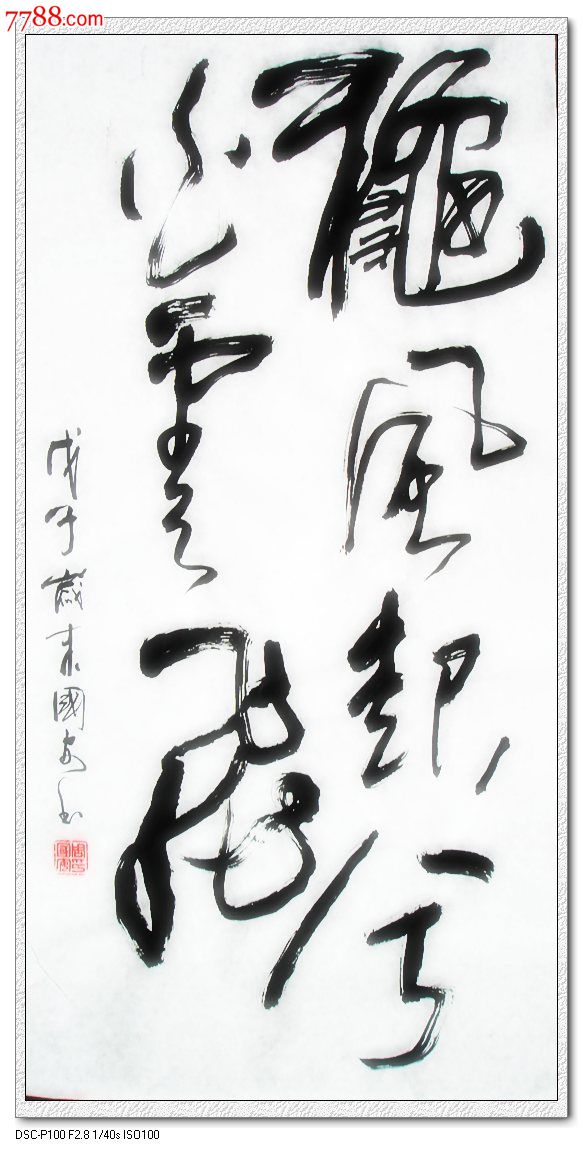 7788.com
龝風起兮
白雲飛
戊子歲末國安书
DSC-P100 F2.8 1/40s ISO100